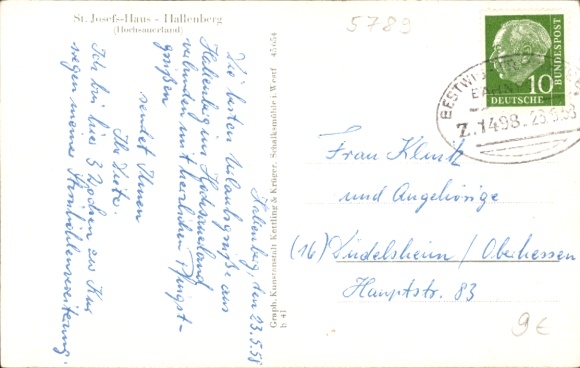 St. Josefs-Haus - Hallenberg
(Hochsauerland)
Hallenberg, den 23.5.58
Die besten Urlaubsgrüße aus
Hallenberg im Hochsauerland
verbunden mit herzlichen Pfingst-
grüßen
sendet Ihnen
Ihr
Ich bin hier 3 Wochen zur Kur
wegen meiner
Graph. Kunstanstalt Kettling & Krüger, Schalksmühle i. Westf. 45654
b 41
5789
10
DEUTSCHE
BUNDESPOST
BESTWIG
BAHNPOST
Z.1498.23.5.58
Frau Klink
und Angehörige
(16) Düdelsheim / Oberhessen
Hauptstr. 83
9€